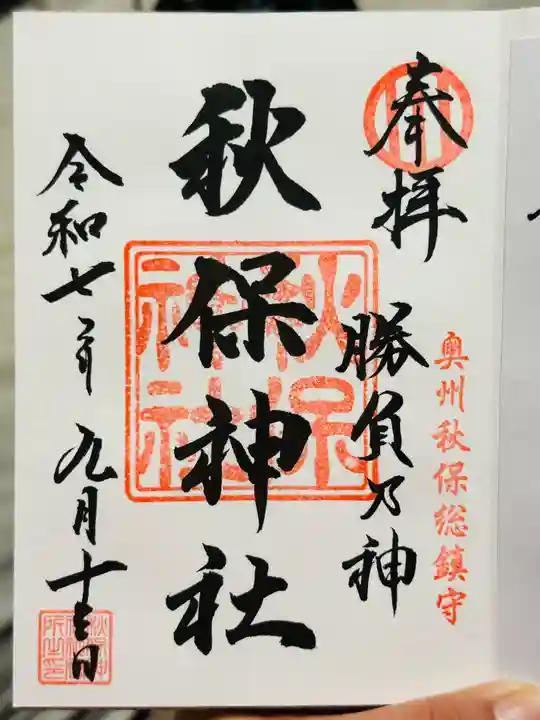 奉拝
奥州秋保総鎮守
勝負乃神
秋保神社
秋保神社
令和七年九月十三日